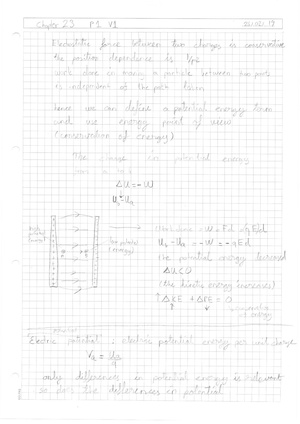 Chapter 23 P1 V1
Electrostatic force between two charges is conservative
the position dependence is 1/r²
work done in moving a particle between two points
is independent of the path taken
hence we can define a potential energy term
and use energy point of view
(conservation of energy)
The change in potential energy
ΔU = -W
U_b - U_a
W = Fd = qEd
U_b - U_a = -W = -qEd
the potential energy decreased
ΔU < 0
(the kinetic energy increases)
ΔKE + ΔPE = 0
of energy
"Electric potential" : electric potential energy per unit charge
V_a = U_a / q
only differences in potential energy is relevant
so does the differences in potential